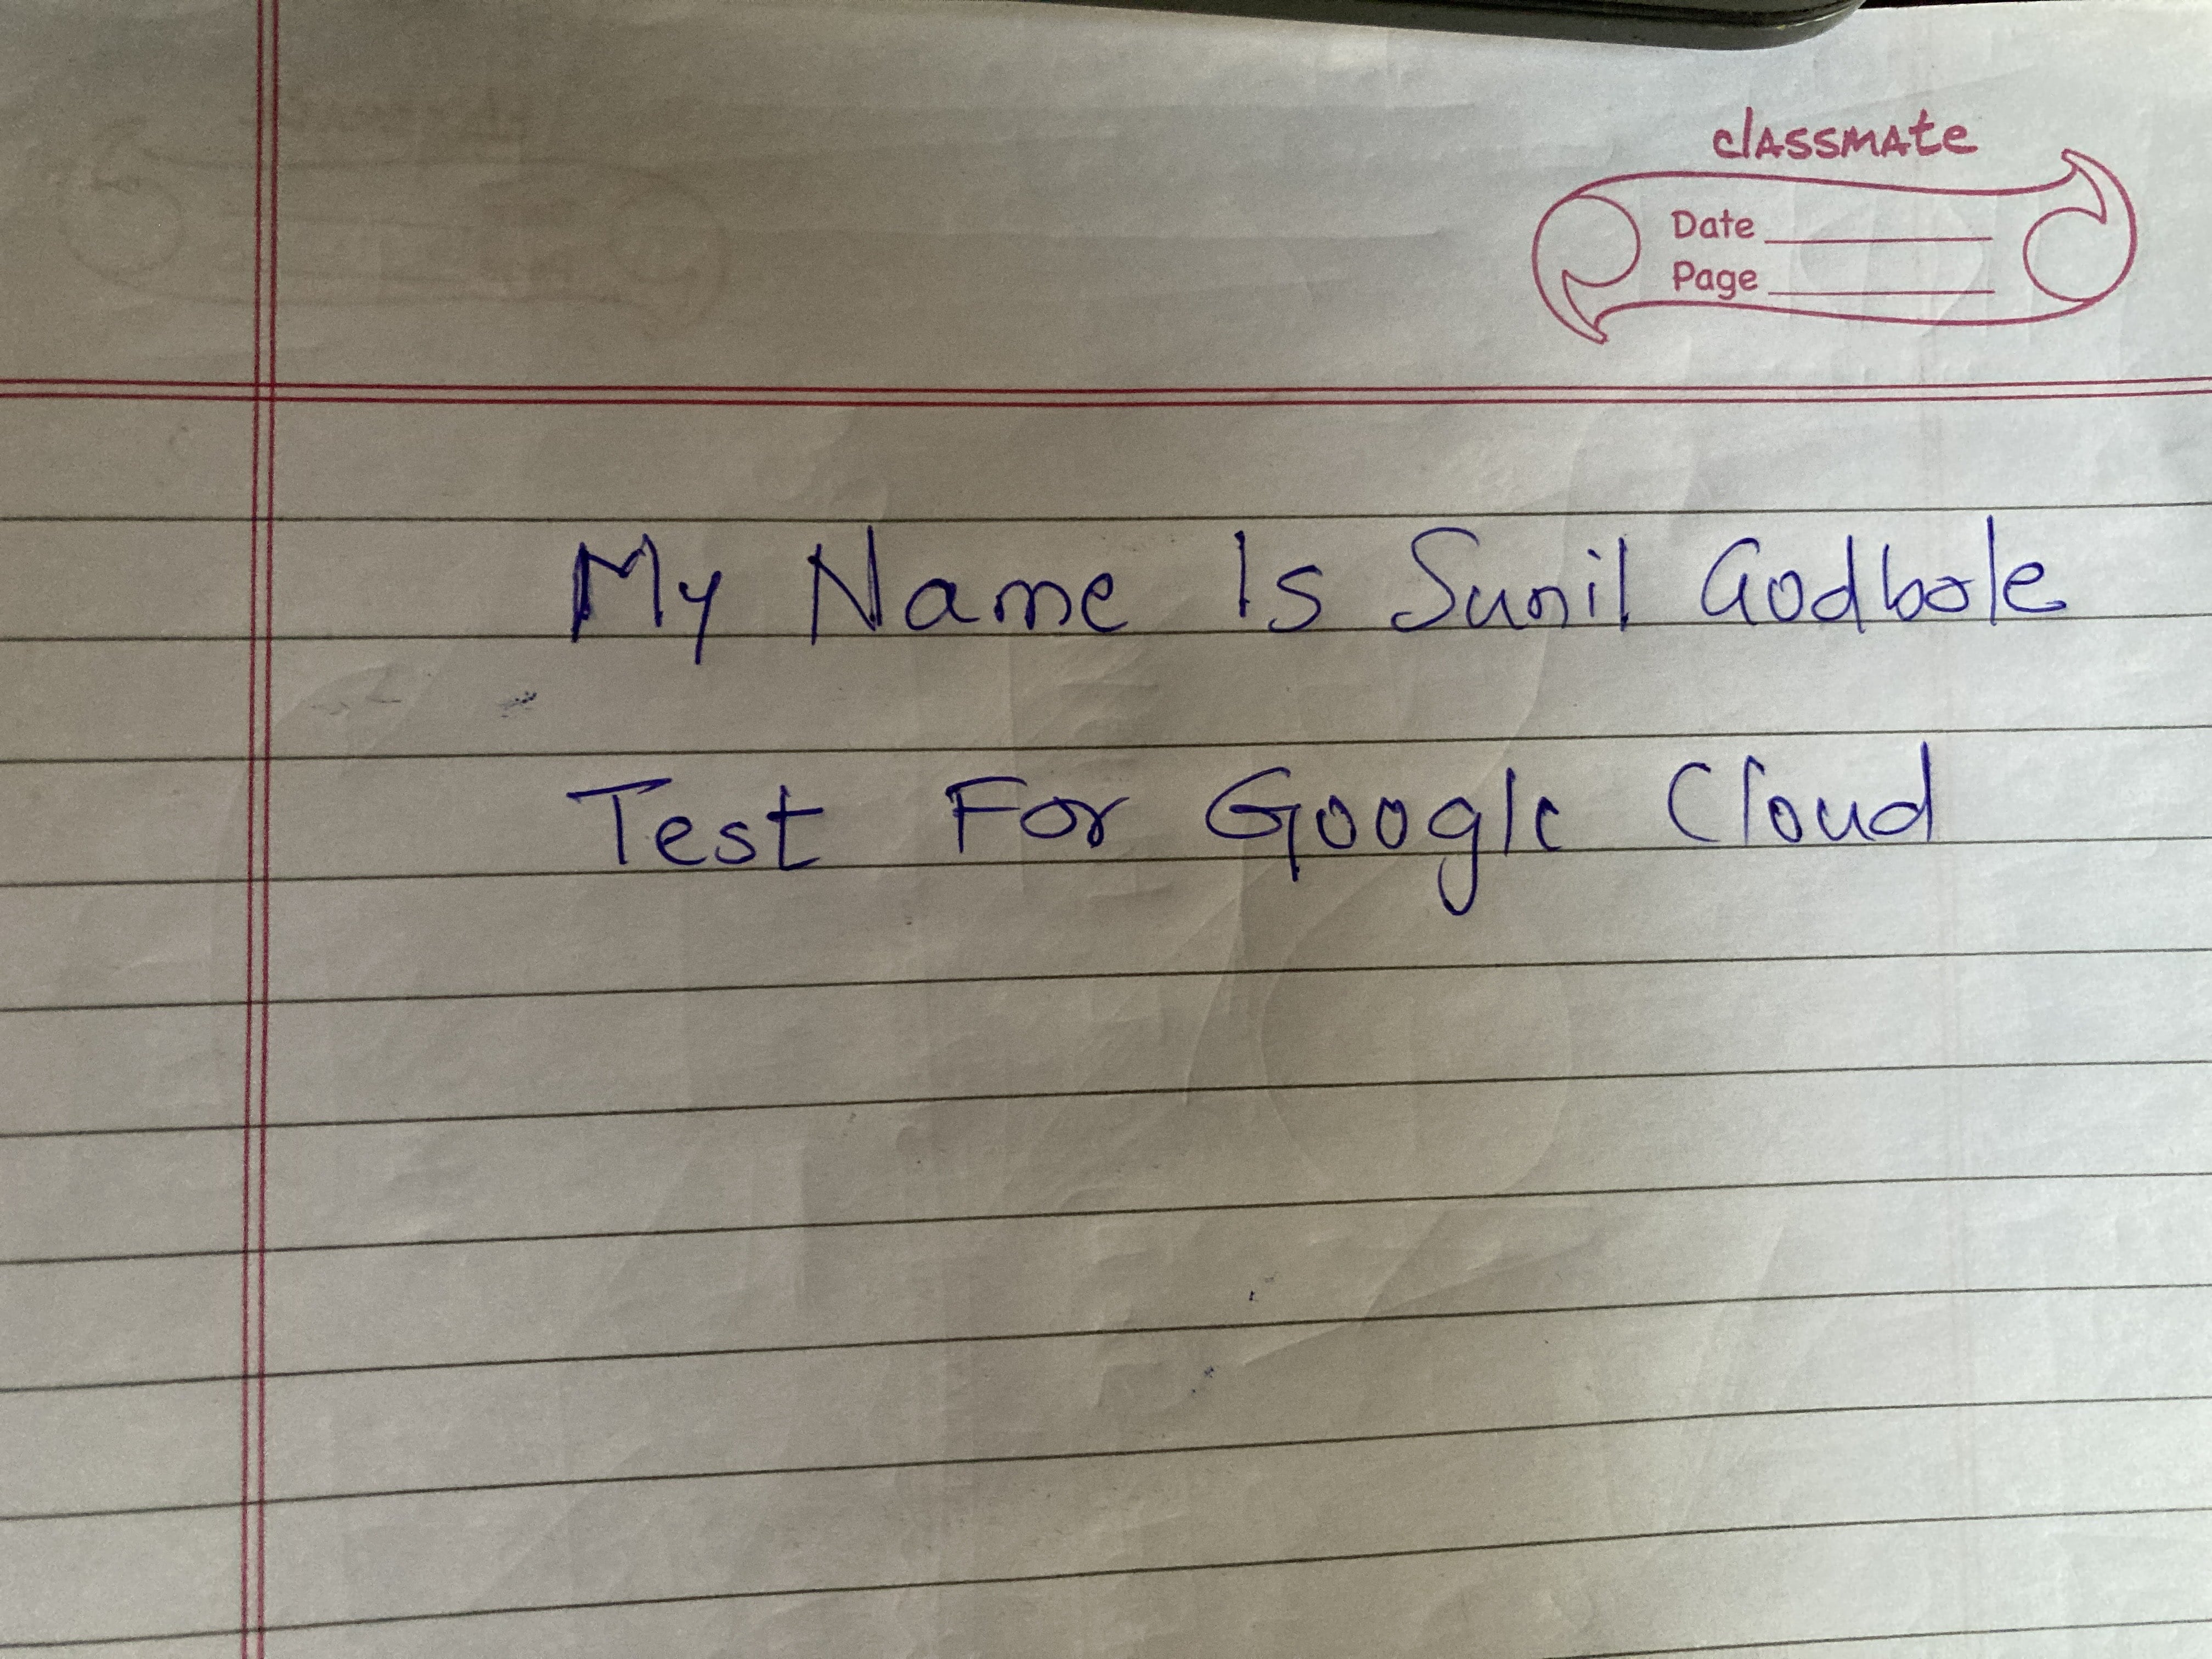 classmate
Date
Page
My Name Is Sunil Godbole
Test For Google Cloud